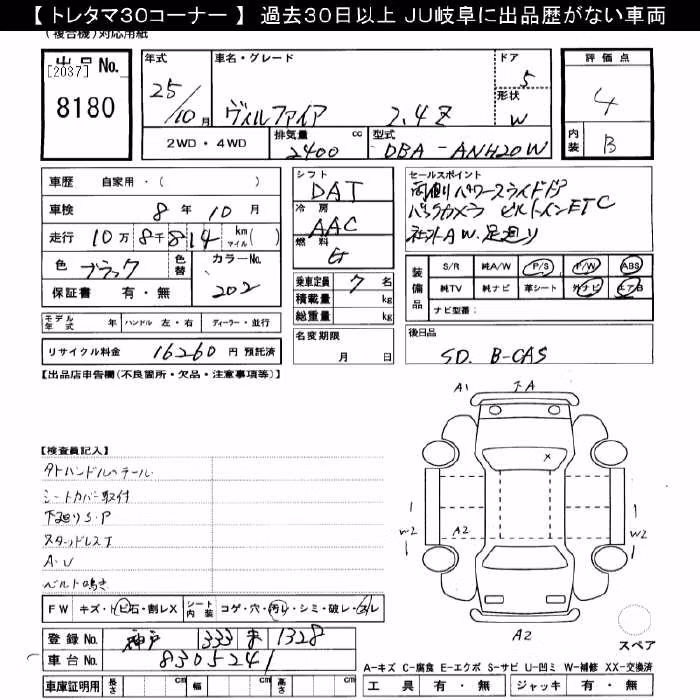 【 トレタマ30コーナー 】 過去30日以上 JU岐阜に出品歴がない車両
(複合機)対応用紙
出品No.
[2037]
8180
年式
25/10月
車名・グレード
ヴェルファイア 2.4Z
ドア
5
形状
W
2WD・4WD
排気量
2400 cc
型式
DBA-ANH20W
評価点
4
内装
B
車歴 自家用・( )
車検 8年10月
走行 10万8千814 km マイル( )
色 ブラック
色替
カラーNo.
202
保証書 有・無
モデル年式 年 ハンドル 左・右 ディーラー・並行
リサイクル料金 16260 円 預託済
シフト
DAT
冷房
AAC
燃料
G
乗車定員 7 名
積載量 kg
総重量 kg
名変期限
月 日
セールスポイント
両側パワースライドドア
バックカメラ ビルトインETC
社外AW.足廻り
装備品
S/R 純A/W P/S P/W ABS
純TV 純ナビ 革シート 外ナビ エアB
ナビ型番:
後日品
SD. B-CAS
【出品店申告欄(不良箇所・欠品・注意事項等)】
【検査員記入】
シートカバー取付
下廻りS・P
A・U
ベルト鳴き
A1
A
W2
A2
W2
A2
スペア
FW キズ・トビ石・割レX シート内装 コゲ・穴・汚レ・シミ・破レ・スレ
登録No. 神戸 333 1328
車台No. 8305241
車庫証明用 長さ cm 幅 cm 高さ cm
A-キズ C-腐食 E-エクボ S-サビ U-凹ミ W-補修 XX-交換済
工具 有・無 ジャッキ 有・無